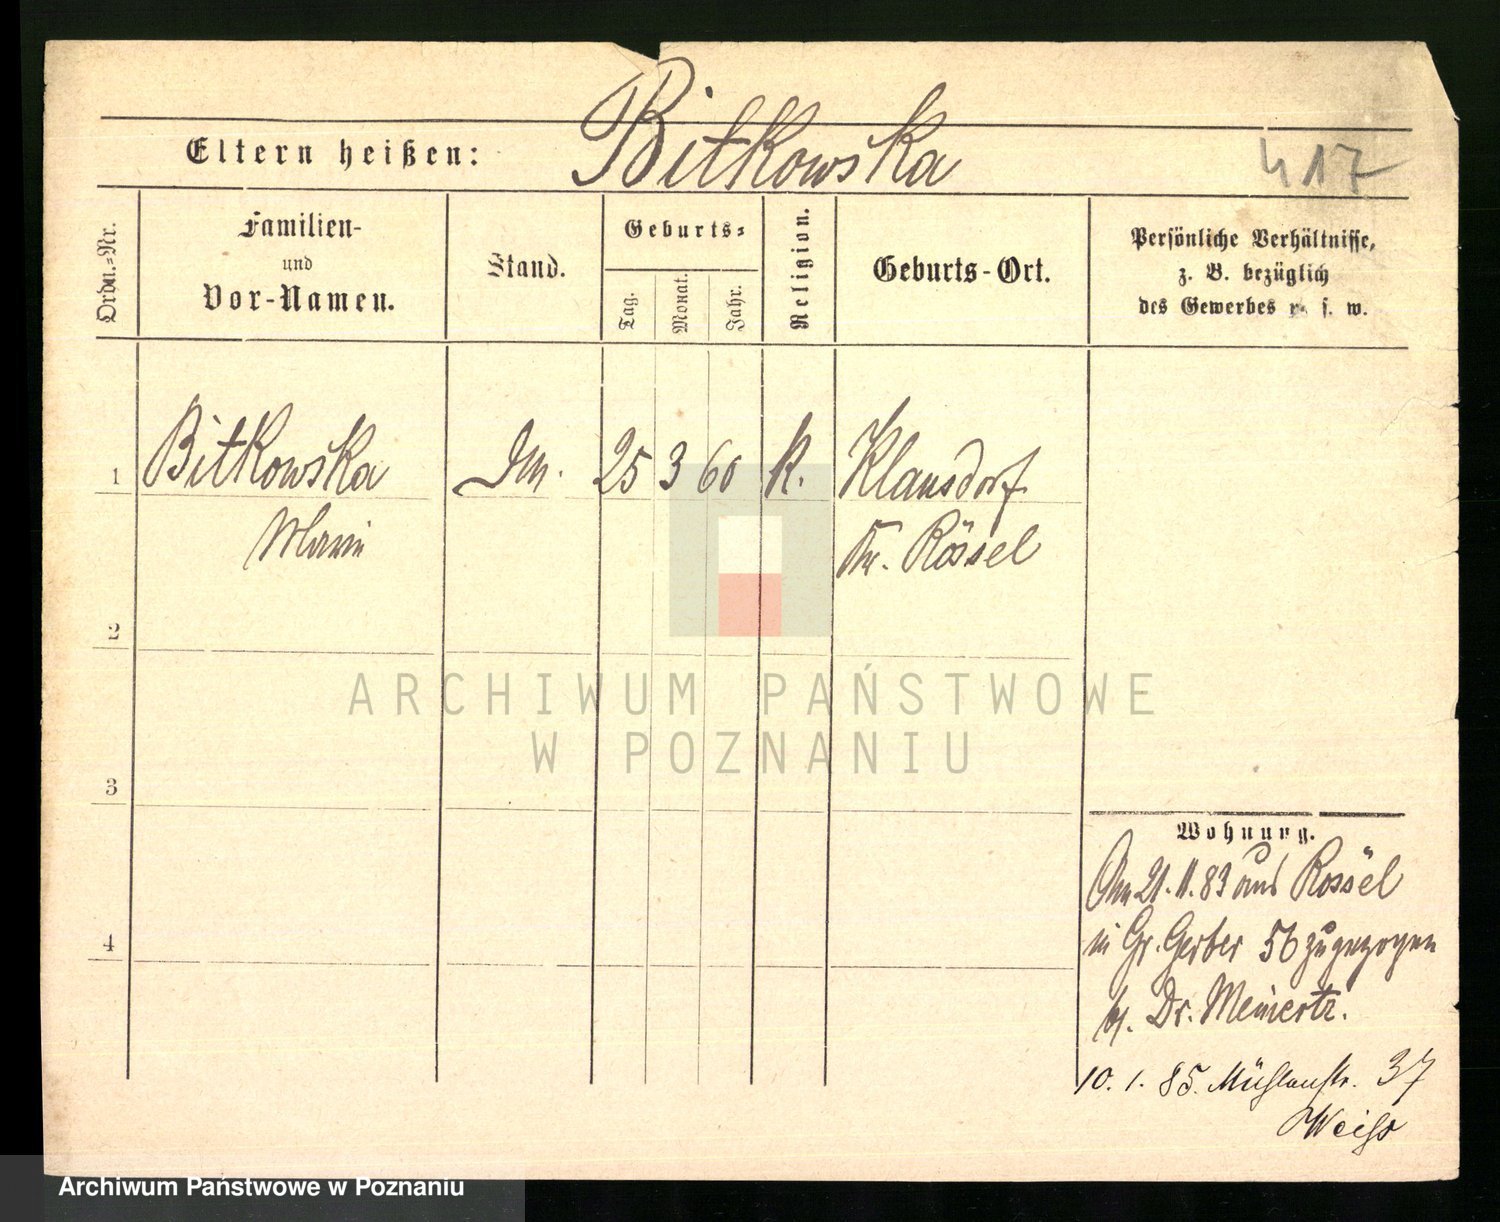 Eltern heißen: Bitkowska
417
Ordn.=Nr.
Familien-
und
Vor-Namen.
Stand.
Geburts=
Tag.
Monat.
Jahr.
Religion.
Geburts-Ort.
Persönliche Verhältnisse,
z. B. bezüglich
des Gewerbes u. s. w.
1 Bitkowska 25 3 60 k. Klausdorf
Marie Kr. Rössel
2
3
4
Wohnung.
Am 21.11.83 aus Rössel
in Gr. Gerber 56 zugezogen
b/. Dr. Meinertz.
10. 1. 85. Mühlenstr. 37
Weiss
ARCHIWUM PAŃSTWOWE
W POZNANIU
Archiwum Państwowe w Poznaniu